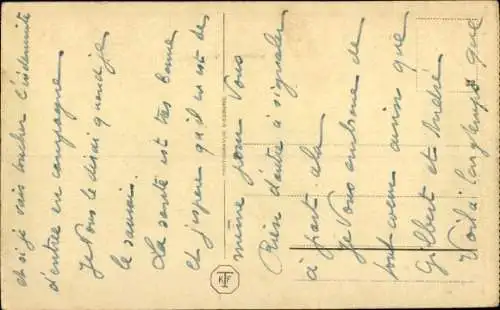 et si je vais toucher l'indemnité
d'entrée en campagne
Je vous le dirai quand je
le saurai.
La santé est très bonne
et j'espère qu'il en est de
même pour Vous
Rien d'autre à signaler
à part cela
Je Vous embrasse de
tout coeur ainsi que
Gilbert et André
Voilà longtemps que
KF